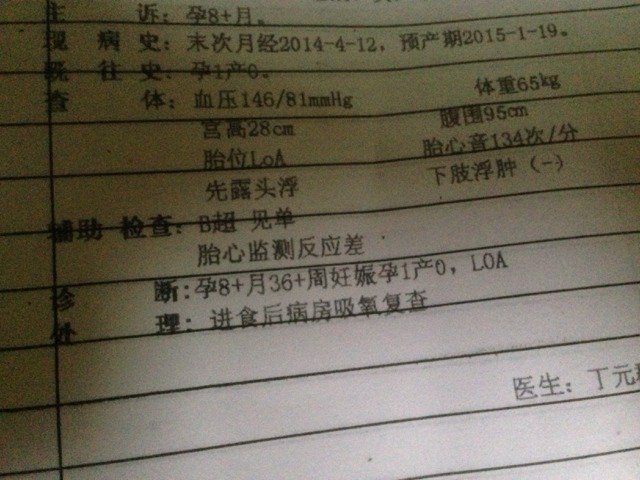 主 诉：孕8+月。
现 病 史：末次月经2014-4-12，预产期2015-1-19。
既 往 史：孕1产0。
查 体：血压146/81mmHg 体重65kg
宫高28cm 腹围95cm
胎位LoA 胎心音134次/分
先露头浮 下肢浮肿（-）
辅助 检查：B超 见单
胎心监测反应差
诊 断：孕8+月36+周妊娠孕1产0，LOA
处 理：进食后病房吸氧复查
医生：丁元